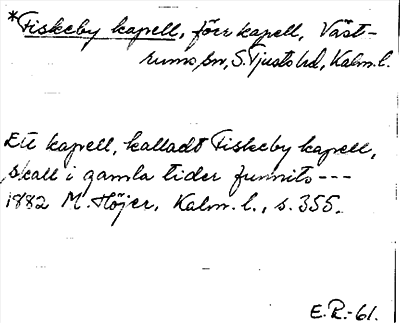 *Fiskeby kapell, förr kapell, Väst-
rums sn, S. Tjusts hd, Kalm. l.
Ett kapell, kalladt Fiskeby kapell,
skall i gamla tider funnits ---
1882 M. Höjer, Kalm. l., s. 355.
E.R.-61.